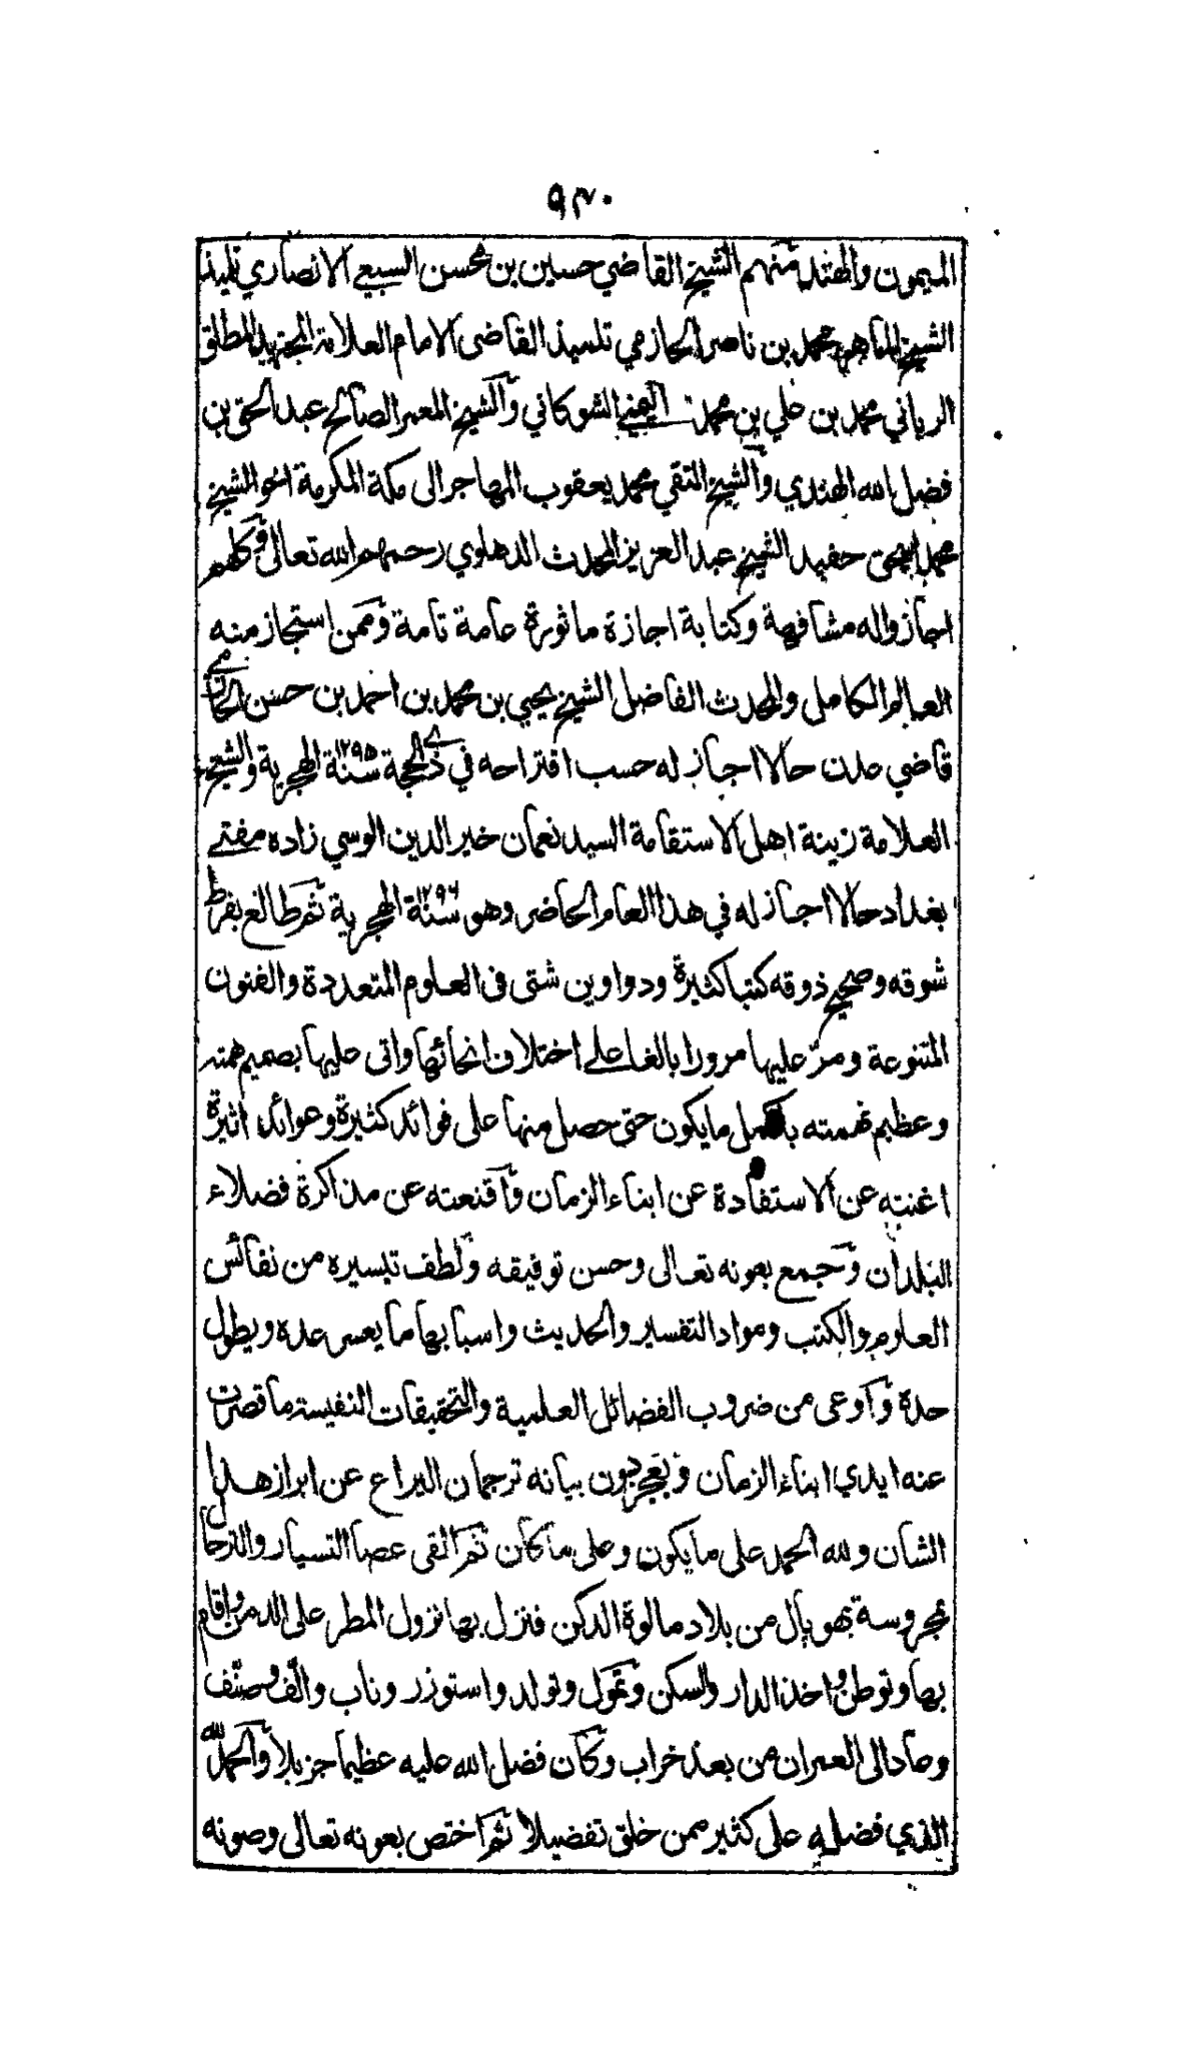 ٩٣٠
الميمون والهند منهم الشيخ القاضي حسين بن محسن السبعي الانصاري تلميذ
الشيخ الماهر محمد بن ناصر الحازمي تلميذ القاضى الامام العلامة المجتهد المطلق
الرباني محمد بن علي بن محمد اليمني الشوكاني والشيخ المعمر الصالح عبد الحق بن
فضل الله الهندي والشيخ التقي محمد يعقوب المهاجر الى مكة المكرمة اخو الشيخ
محمد اسحق حفيد الشيخ عبد العزيز المحدث الدهلوي رحمهم الله تعالى وكلهم
اجازوا له مشافهة وكتابة اجازة ماثورة عامة تامة وممن استجاز منه
العالم الكامل والمحدث الفاضل الشيخ يحيى بن محمد بن احمد بن حسن الحازمي
قاضي عدن حالا اجاز له حسب اقتراحه في ذي الحجة سنة ١٢٩٥ الهجرية والشيخ
العلامة زينة اهل الاستقامة السيد نعمان خير الدين الوسي زاده مفتي
بغداد حالا اجاز له في هذا العام الحاضر وهو سنة ١٢٩٦ الهجرية ثم طالع بفرط
شوقه وصحيح ذوقه كتبا كثيرة ودواوين شتى فى العلوم المتعددة والفنون
المتنوعة ومرّ عليها مرورا بالغا على اختلاف انحائها واتى عليها بصميم همته
وعظيم نهمته باكمل ما يكون حتى حصل منها على فوائد كثيرة وعوائد اثيرة
اغنته عن الاستفادة عن ابناء الزمان واقنعته عن مذاكرة فضلاء
البلدان وجمع بعونه تعالى وحسن توفيقه ولطف تيسيره من نفائس
العلوم والكتب ومواد التفسير والحديث واسبابها ما يعسر عده ويطول
حده واوعى من ضروب الفضائل العلمية والتحقيقات النفيسة ما قصرت
عنه ايدي ابناء الزمان ويعجز دون بيانه ترجمان اليراع عن ابراز هذا
الشان ولله الحمد على ما يكون وعلى ما كان ثم القى عصا التسيار والترحال
بمحروسة بهوپال من بلاد مالوة الدكن فنزل بها نزول المطر على الدمن واقام
بها وتوطن واخذ الدار والسكن وتمول وتولد واستوزر وناب والّف وصنّف
وعاد الى العمران من بعد خراب وكان فضل الله عليه عظيما جزيلا والحمد لله
الذي فضله على كثير ممن خلق تفضيلا ثم اختص بعونه تعالى وصونه